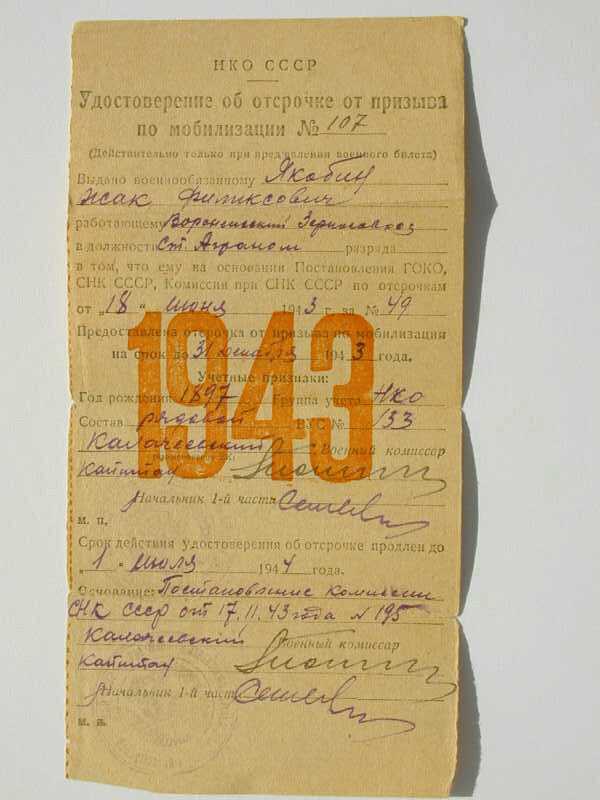 НКО СССР
Удостоверение об отсрочке от призыва
по мобилизации № 107
(Действительно только при предъявлении военного билета)
Выдано военнообязанному Якобин
Жак Филиксович
работающему Воронежский
в должности Ст. Агроном разряда
в том, что ему на основании Постановления ГОКО,
СНК СССР, Комиссии при СНК СССР по отсрочкам
от „18" июня 1943 г. за № 49
Предоставлена отсрочка от призыва по мобилизации
на срок до 31 декабря 1943 года.
Учетные признаки:
Год рождения 1897 Группа учета НКО
Состав рядовой ВУС № 133
Калачеевский Военный комиссар
капитан
Начальник 1-й части
м. п.
1943
Срок действия удостоверения об отсрочке продлен до
„1" июля 1944 года.
Основание: Постановление комиссии
СНК СССР от 17.11.43 года № 195
Калачеевский Военный комиссар
капитан
Начальник 1-й части
м. п.